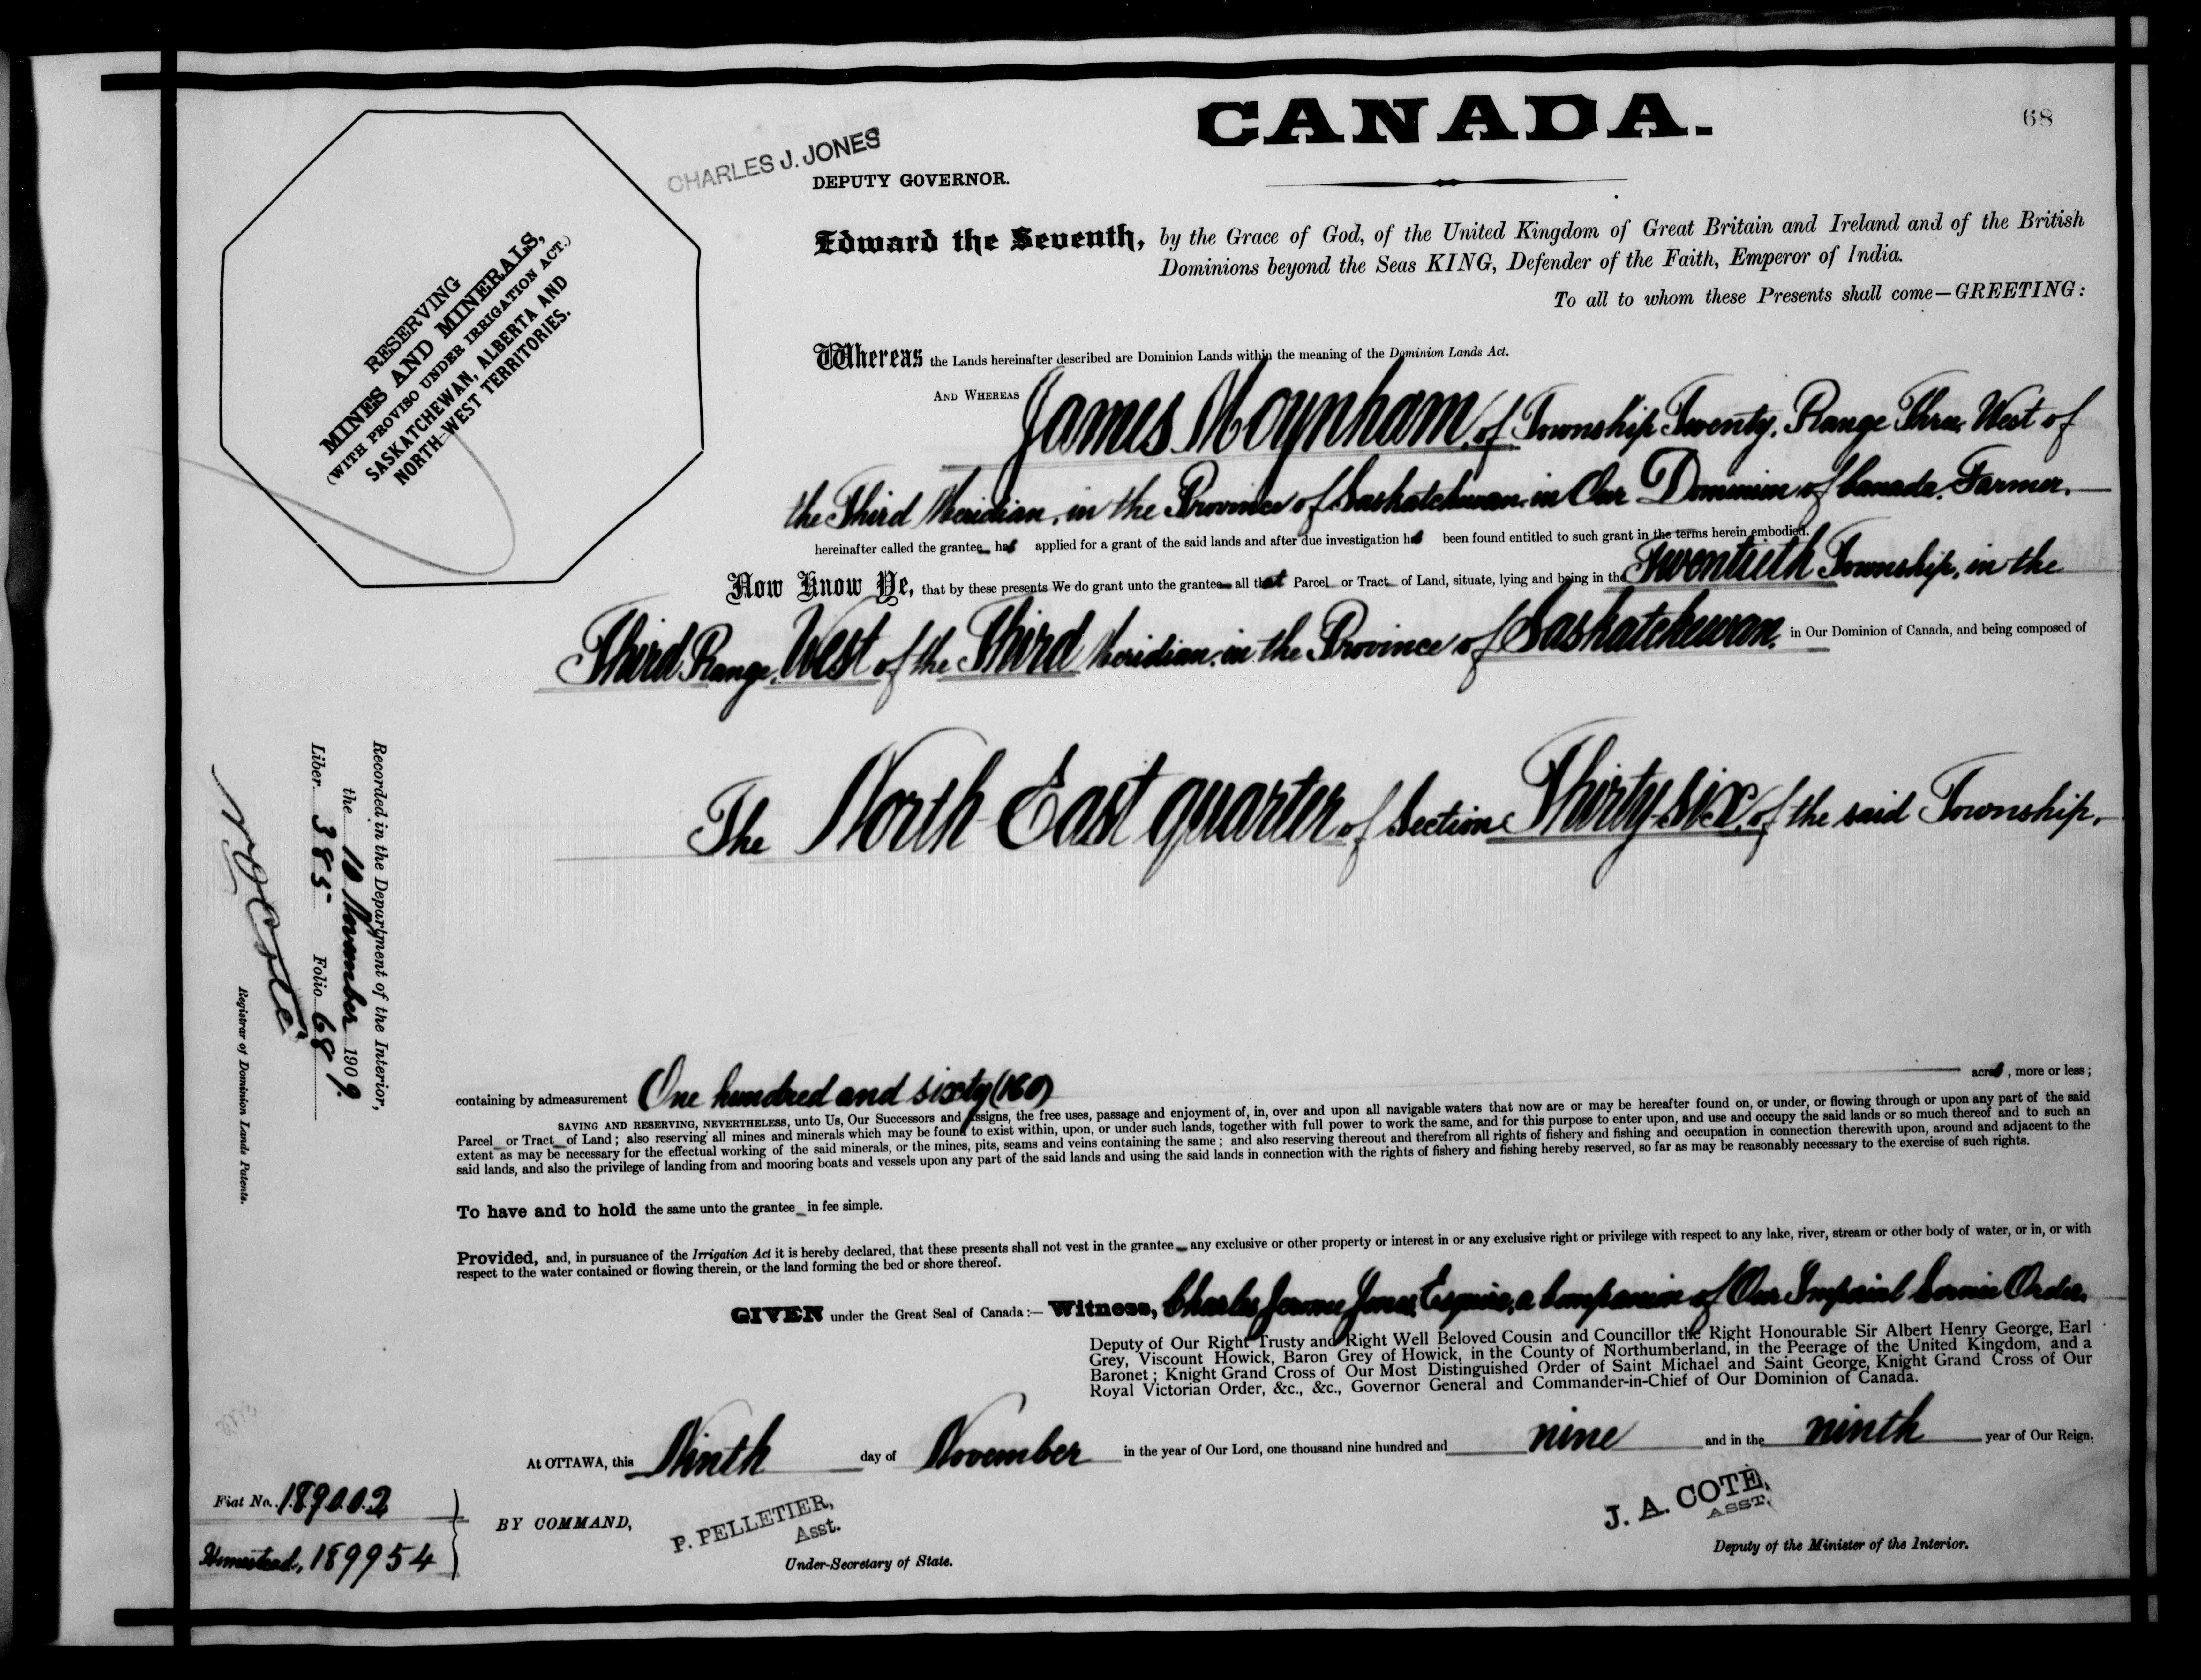 CANADA.
68
CHARLES J. JONES
DEPUTY GOVERNOR.
RESERVING
MINES AND MINERALS,
(WITH PROVISO UNDER IRRIGATION ACT.)
SASKATCHEWAN, ALBERTA AND
NORTH-WEST TERRITORIES.
Edward the Seventh, by the Grace of God, of the United Kingdom of Great Britain and Ireland and of the British
Dominions beyond the Seas KING, Defender of the Faith, Emperor of India.
To all to whom these Presents shall come—GREETING:
Whereas the Lands hereinafter described are Dominion Lands within the meaning of the Dominion Lands Act.
AND WHEREAS James Moynham, of Township Twenty, Range Three, West of
the Third Meridian, in the Province of Saskatchewan, in Our Dominion of Canada, Farmer,
hereinafter called the grantee has applied for a grant of the said lands and after due investigation has been found entitled to such grant in the terms herein embodied.
Now Know Ye, that by these presents We do grant unto the grantee all that Parcel or Tract of Land, situate, lying and being in the Twentieth Township, in the
Third Range, West of the Third Meridian, in the Province of Saskatchewan, in Our Dominion of Canada, and being composed of
The North East quarter of Section Thirty-six, of the said Township,
containing by admeasurement One hundred and sixty (160) acres, more or less;
SAVING AND RESERVING, NEVERTHELESS, unto Us, Our Successors and Assigns, the free uses, passage and enjoyment of, in, over and upon all navigable waters that now are or may be hereafter found on, or under, or flowing through or upon any part of the said
Parcel or Tract of Land; also reserving all mines and minerals which may be found to exist within, upon, or under such lands, together with full power to work the same, and for this purpose to enter upon, and use and occupy the said lands or so much thereof and to such an
extent as may be necessary for the effectual working of the said minerals, or the mines, pits, seams and veins containing the same; and also reserving thereout and therefrom all rights of fishery and fishing and occupation in connection therewith upon, around and adjacent to the
said lands, and also the privilege of landing from and mooring boats and vessels upon any part of the said lands and using the said lands in connection with the rights of fishery and fishing hereby reserved, so far as may be reasonably necessary to the exercise of such rights.
To have and to hold the same unto the grantee in fee simple.
Provided, and, in pursuance of the Irrigation Act it is hereby declared, that these presents shall not vest in the grantee any exclusive or other property or interest in or any exclusive right or privilege with respect to any lake, river, stream or other body of water, or in, or with
respect to the water contained or flowing therein, or the land forming the bed or shore thereof.
GIVEN under the Great Seal of Canada:— Witness, Charles Jerome Jones, Esquire, a Companion of Our Imperial Service Order,
Deputy of Our Right Trusty and Right Well Beloved Cousin and Councillor the Right Honourable Sir Albert Henry George, Earl
Grey, Viscount Howick, Baron Grey of Howick, in the County of Northumberland, in the Peerage of the United Kingdom, and a
Baronet; Knight Grand Cross of Our Most Distinguished Order of Saint Michael and Saint George, Knight Grand Cross of Our
Royal Victorian Order, &c., &c., Governor General and Commander-in-Chief of Our Dominion of Canada.
At OTTAWA, this Ninth day of November in the year of Our Lord, one thousand nine hundred and nine and in the ninth year of Our Reign.
BY COMMAND,
P. PELLETIER,
Asst.
Under-Secretary of State.
J. A. COTÉ,
ASST.
Deputy of the Minister of the Interior.
Fiat No. 189002
Homestead, 189954
Recorded in the Department of the Interior,
the 10 November 1909.
Liber 385 Folio 68
N O Coté
Registrar of Dominion Lands Patents.